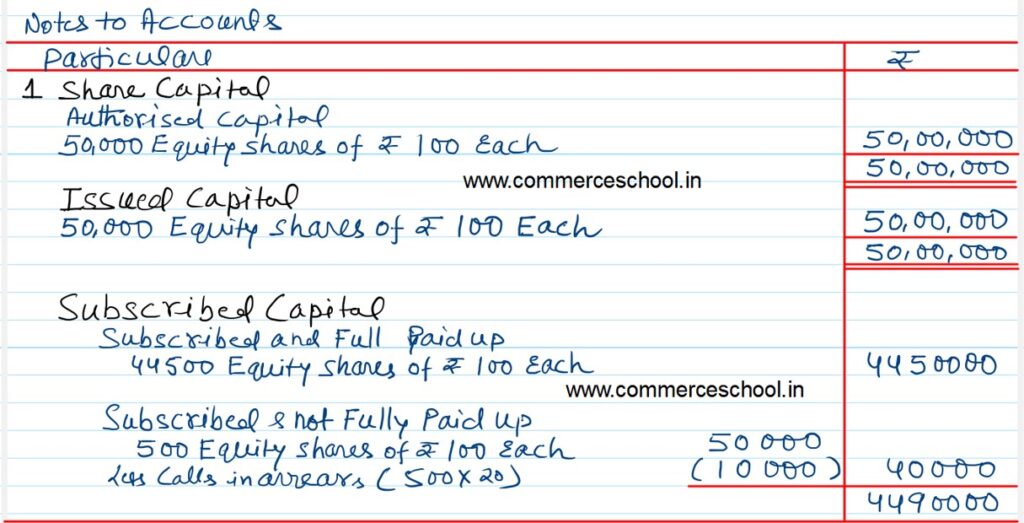 Notes to Accounts
Particulars ₹
1 Share Capital
Authorised Capital
50,000 Equity shares of ₹ 100 Each 50,00,000
50,00,000
www.commerceschool.in
Issued Capital
50,000 Equity shares of ₹ 100 Each 50,00,000
50,00,000
Subscribed Capital
Subscribed and Full Paid up
44500 Equity shares of ₹ 100 Each 4450000
www.commerceschool.in
Subscribed & not Fully Paid up
500 Equity shares of ₹ 100 Each 50000
Less Calls in arrears (500×20) (10000) 40000
4490000